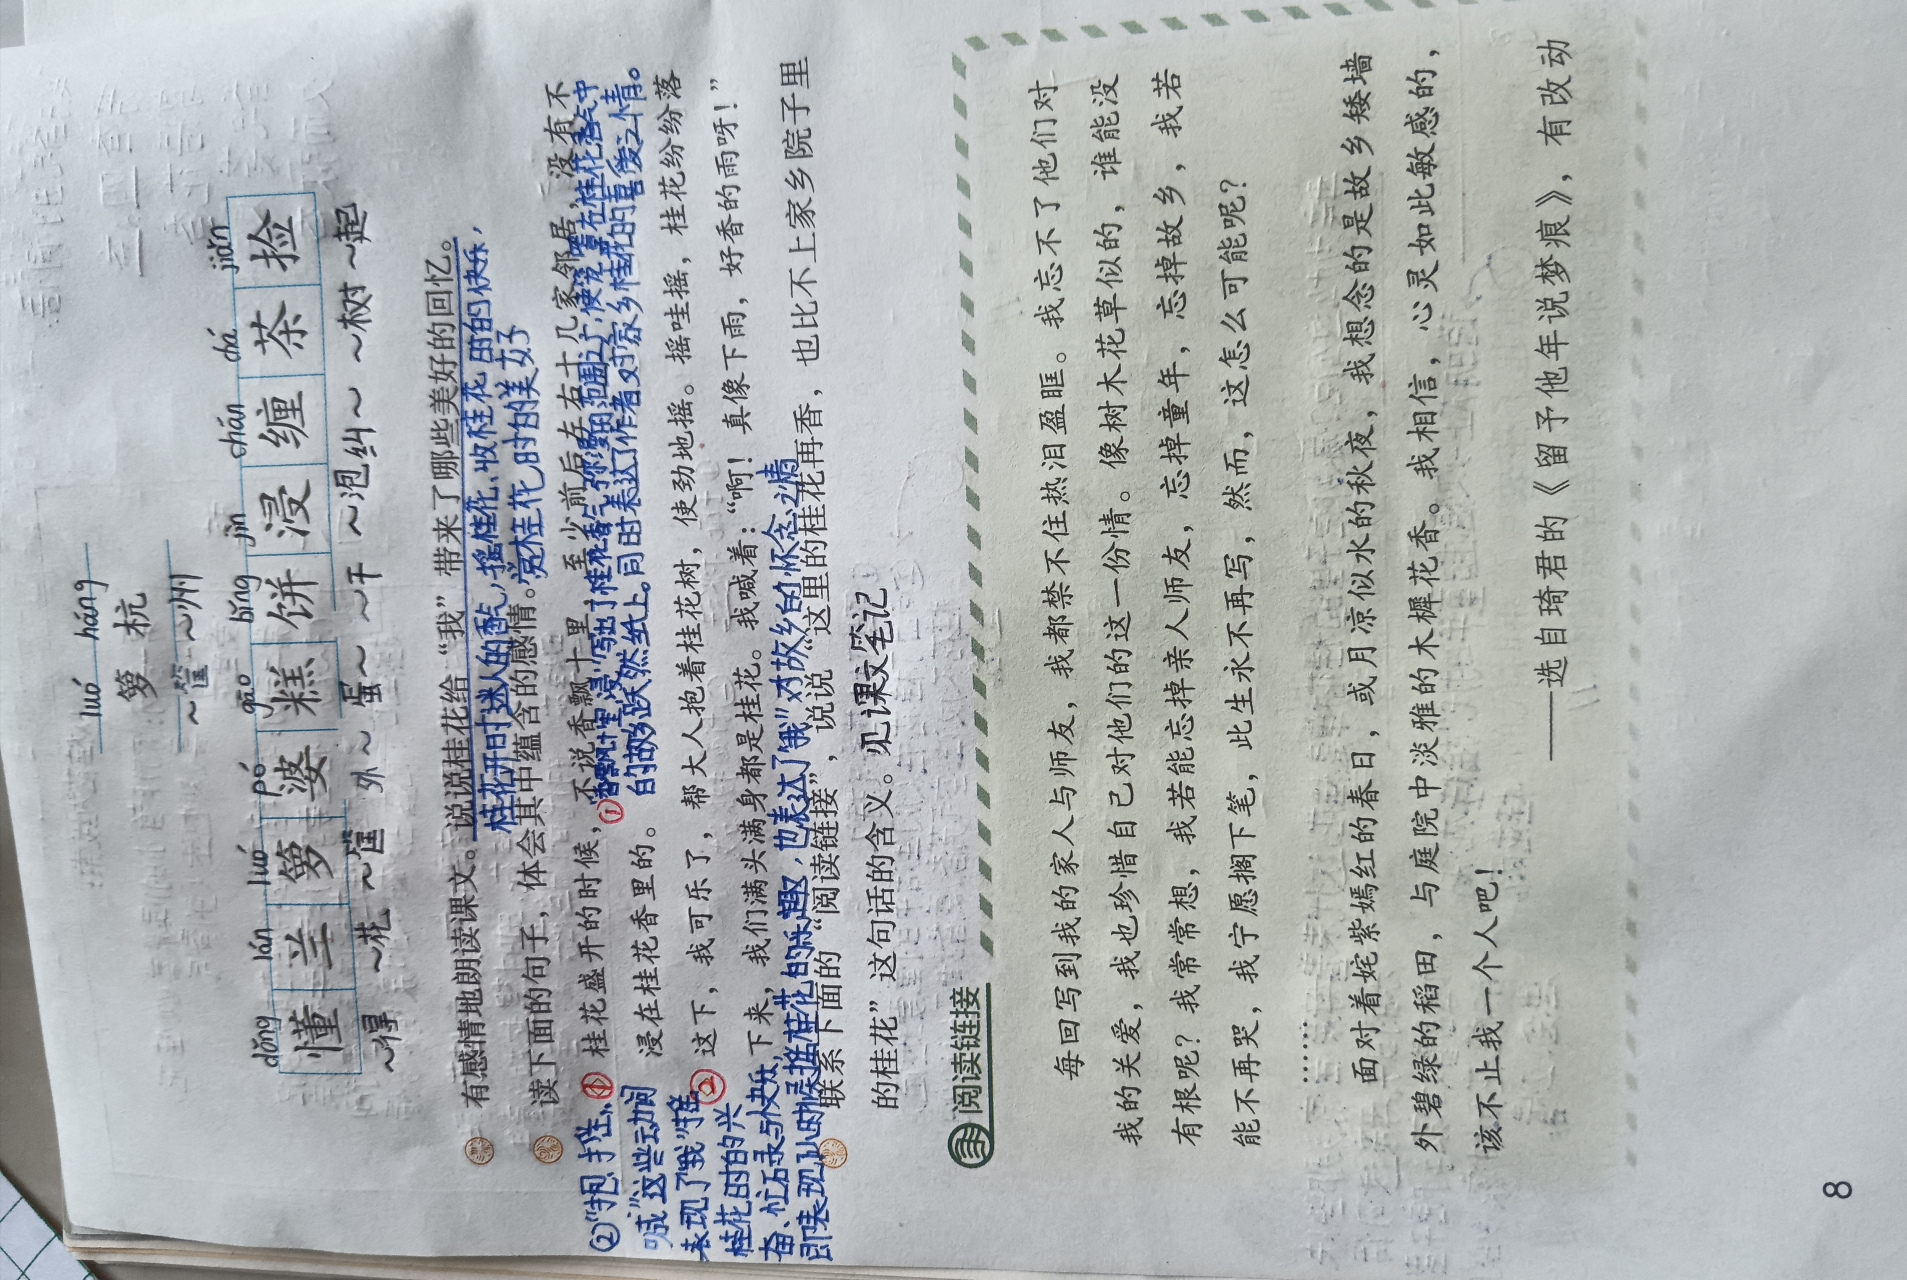 luó háng
箩 杭
～筐 ～州
dǒng lán luó pó gāo bǐng jìn chán chá jiǎn
懂 兰 箩 婆 糕 饼 浸 缠 茶 捡
～得 ～花 ～筐 外～ 蛋～ ～干 ～泡 纠～ ～树 ～起
有感情地朗读课文。说说桂花给“我”带来了哪些美好的回忆。
桂花开时迷人的香气,摇桂花、收桂花时的快乐,
赏桂花时的美好
读下面的句子，体会其中蕴含的感情。
① 桂花盛开的时候，不说香飘十里，至少前后左右十几家邻居，没有不
浸在桂花香里的。
①“香飘十里”“浸”写出了桂花香气弥漫的范围之广,使笼罩在桂花香气中
的故乡跃然纸上。同时表达了作者对家乡桂花的喜爱之情。
② 这下，我可乐了，帮大人抱着桂花树，使劲地摇。摇哇摇，桂花纷纷落
下来，我们满头满身都是桂花。我喊着：“啊！真像下雨，好香的雨呀！”
②“抱、摇、
喊”这些动词
表现了“我”摇
桂花时的兴
奋、忙碌与快乐,
即表现小时候摇桂花的乐趣,也表达了“我”对故乡的怀念之情
联系下面的“阅读链接”，说说“这里的桂花再香，也比不上家乡院子里
的桂花”这句话的含义。见课文笔记
阅读链接
每回写到我的家人与师友，我都禁不住热泪盈眶。我忘不了他们对
我的关爱，我也珍惜自己对他们的这一份情。像树木花草似的，谁能没
有根呢？我常常想，我若能忘掉亲人师友，忘掉童年，忘掉故乡，我若
能不再哭，我宁愿搁下笔，此生永不再写，然而，这怎么可能呢？
……
面对着姹紫嫣红的春日，或月凉似水的秋夜，我想念的是故乡矮墙
外碧绿的稻田，与庭院中淡雅的木樨花香。我相信，心灵如此敏感的，
该不止我一个人吧！
——选自琦君的《留予他年说梦痕》，有改动
8